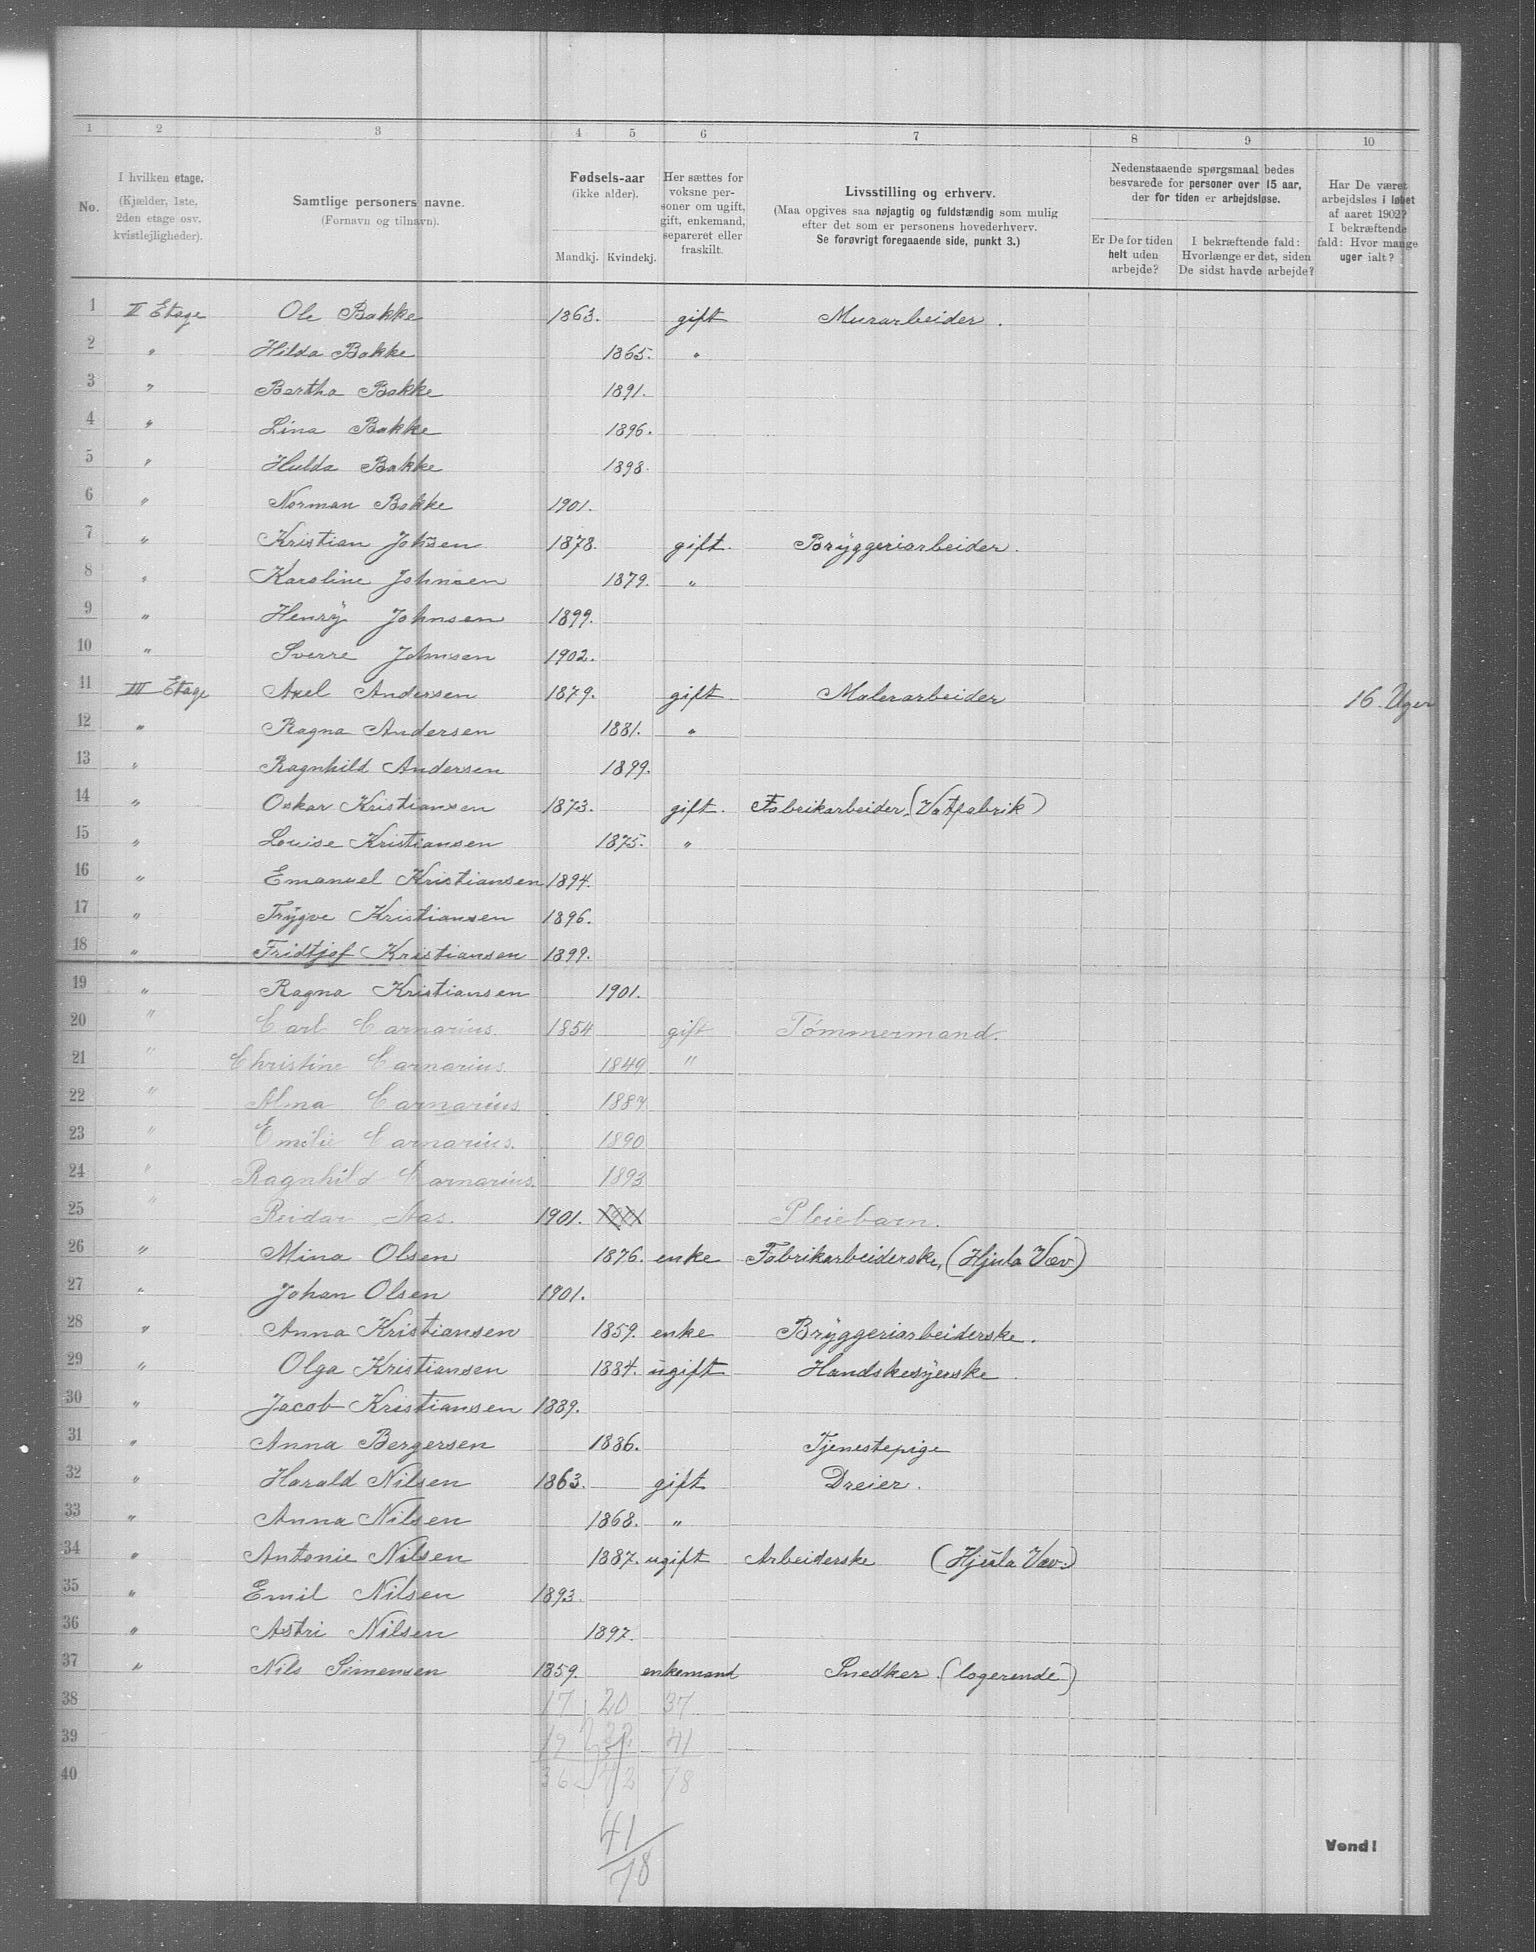 1 2 3 4 5 6 7 8 9 10
No. I hvilken etage. (Kjælder, 1ste, 2den etage osv. kvistlejligheder). Samtlige personers navne. (Fornavn og tilnavn). Fødsels-aar (ikke alder). Mandkj. Kvindekj. Her sættes for voksne personer om ugift, gift, enkemand, separeret eller fraskilt. Livsstilling og erhverv. (Maa opgives saa nøjagtig og fuldstændig som mulig efter det som er personens hovederhverv. Se forøvrigt foregaaende side, punkt 3.) Nedenstaaende spørgsmaal bedes besvarede for personer over 15 aar, der for tiden er arbejdsløse. Er De for tiden helt uden arbejde? I bekræftende fald: Hvorlænge er det, siden De sidst havde arbejde? Har De været arbejdsløs i løbet af aaret 1902? I bekræftende fald: Hvor mange uger ialt?
1 II Etage Ole Bakke 1863. gift Murarbeider.
2 " Hilda Bakke 1865. "
3 " Bertha Bakke 1891.
4 " Lina Bakke 1896.
5 " Hulda Bakke 1898.
6 " Norman Bakke 1901.
7 " Kristian Johsen 1878. gift. Bryggeriarbeider.
8 " Karoline Johnsen 1879. "
9 " Henry Johnsen 1899.
10 " Sverre Johnsen 1902.
11 III Etage Axel Andersen 1879. gift Malerarbeider 16 Uger
12 " Ragna Andersen 1881. "
13 " Ragnhild Andersen 1899.
14 " Oskar Kristiansen 1873. gift. Fabrikarbeider. (Vatfabrik)
15 " Louise Kristiansen 1875. "
16 " Emanuel Kristiansen 1894.
17 " Trygve Kristiansen 1896.
18 " Fridtjof Kristiansen 1899.
19 " Ragna Kristiansen 1901.
20 " Carl Carnarius. 1854 gift Tømmermand.
21 " Christine Carnarius. 1849 "
22 " Alma Carnarius. 1887
23 " Emilie Carnarius. 1890
24 " Ragnhild Carnarius. 1893
25 " Reidar Aas. 1901. Pleiebarn.
26 " Mina Olsen 1876. enke Fabrikarbeiderske, (Hjula Væv)
27 " Johan Olsen 1901.
28 " Anna Kristiansen 1859. enke Bryggeriarbeiderske.
29 " Olga Kristiansen 1884. ugift Handskesyerske
30 " Jacob Kristiansen 1889.
31 " Anna Bergersen 1886. Tjenestepige
32 " Harald Nilsen 1863. gift Dreier.
33 " Anna Nilsen 1868. "
34 " Antonie Nilsen 1887. ugift Arbeiderske (Hjula Væv.)
35 " Emil Nilsen 1893.
36 " Astri Nilsen 1897.
37 " Nils Simensen 1859. enkemand Snedker. (logerende)
38 17 20 37
39 19 22 41
40 36 42 78
41/78
Vend!